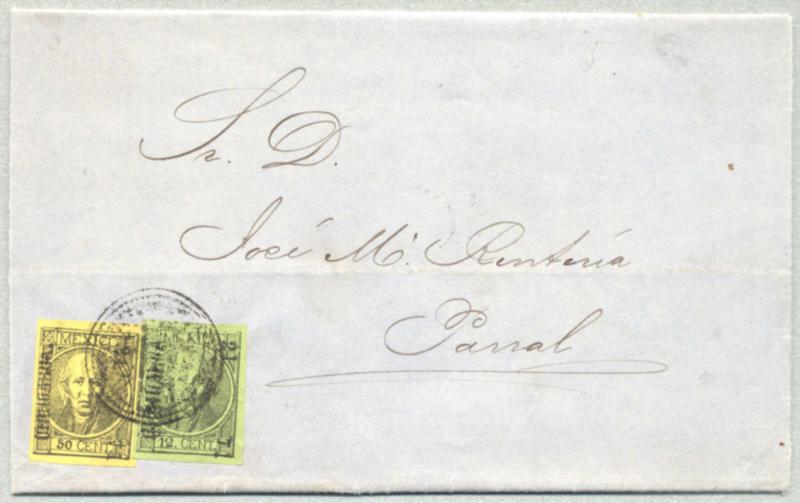 Sr. D.
José Mª. Rentería
Parral
MEXICO
50 CENT.
12. CENT.